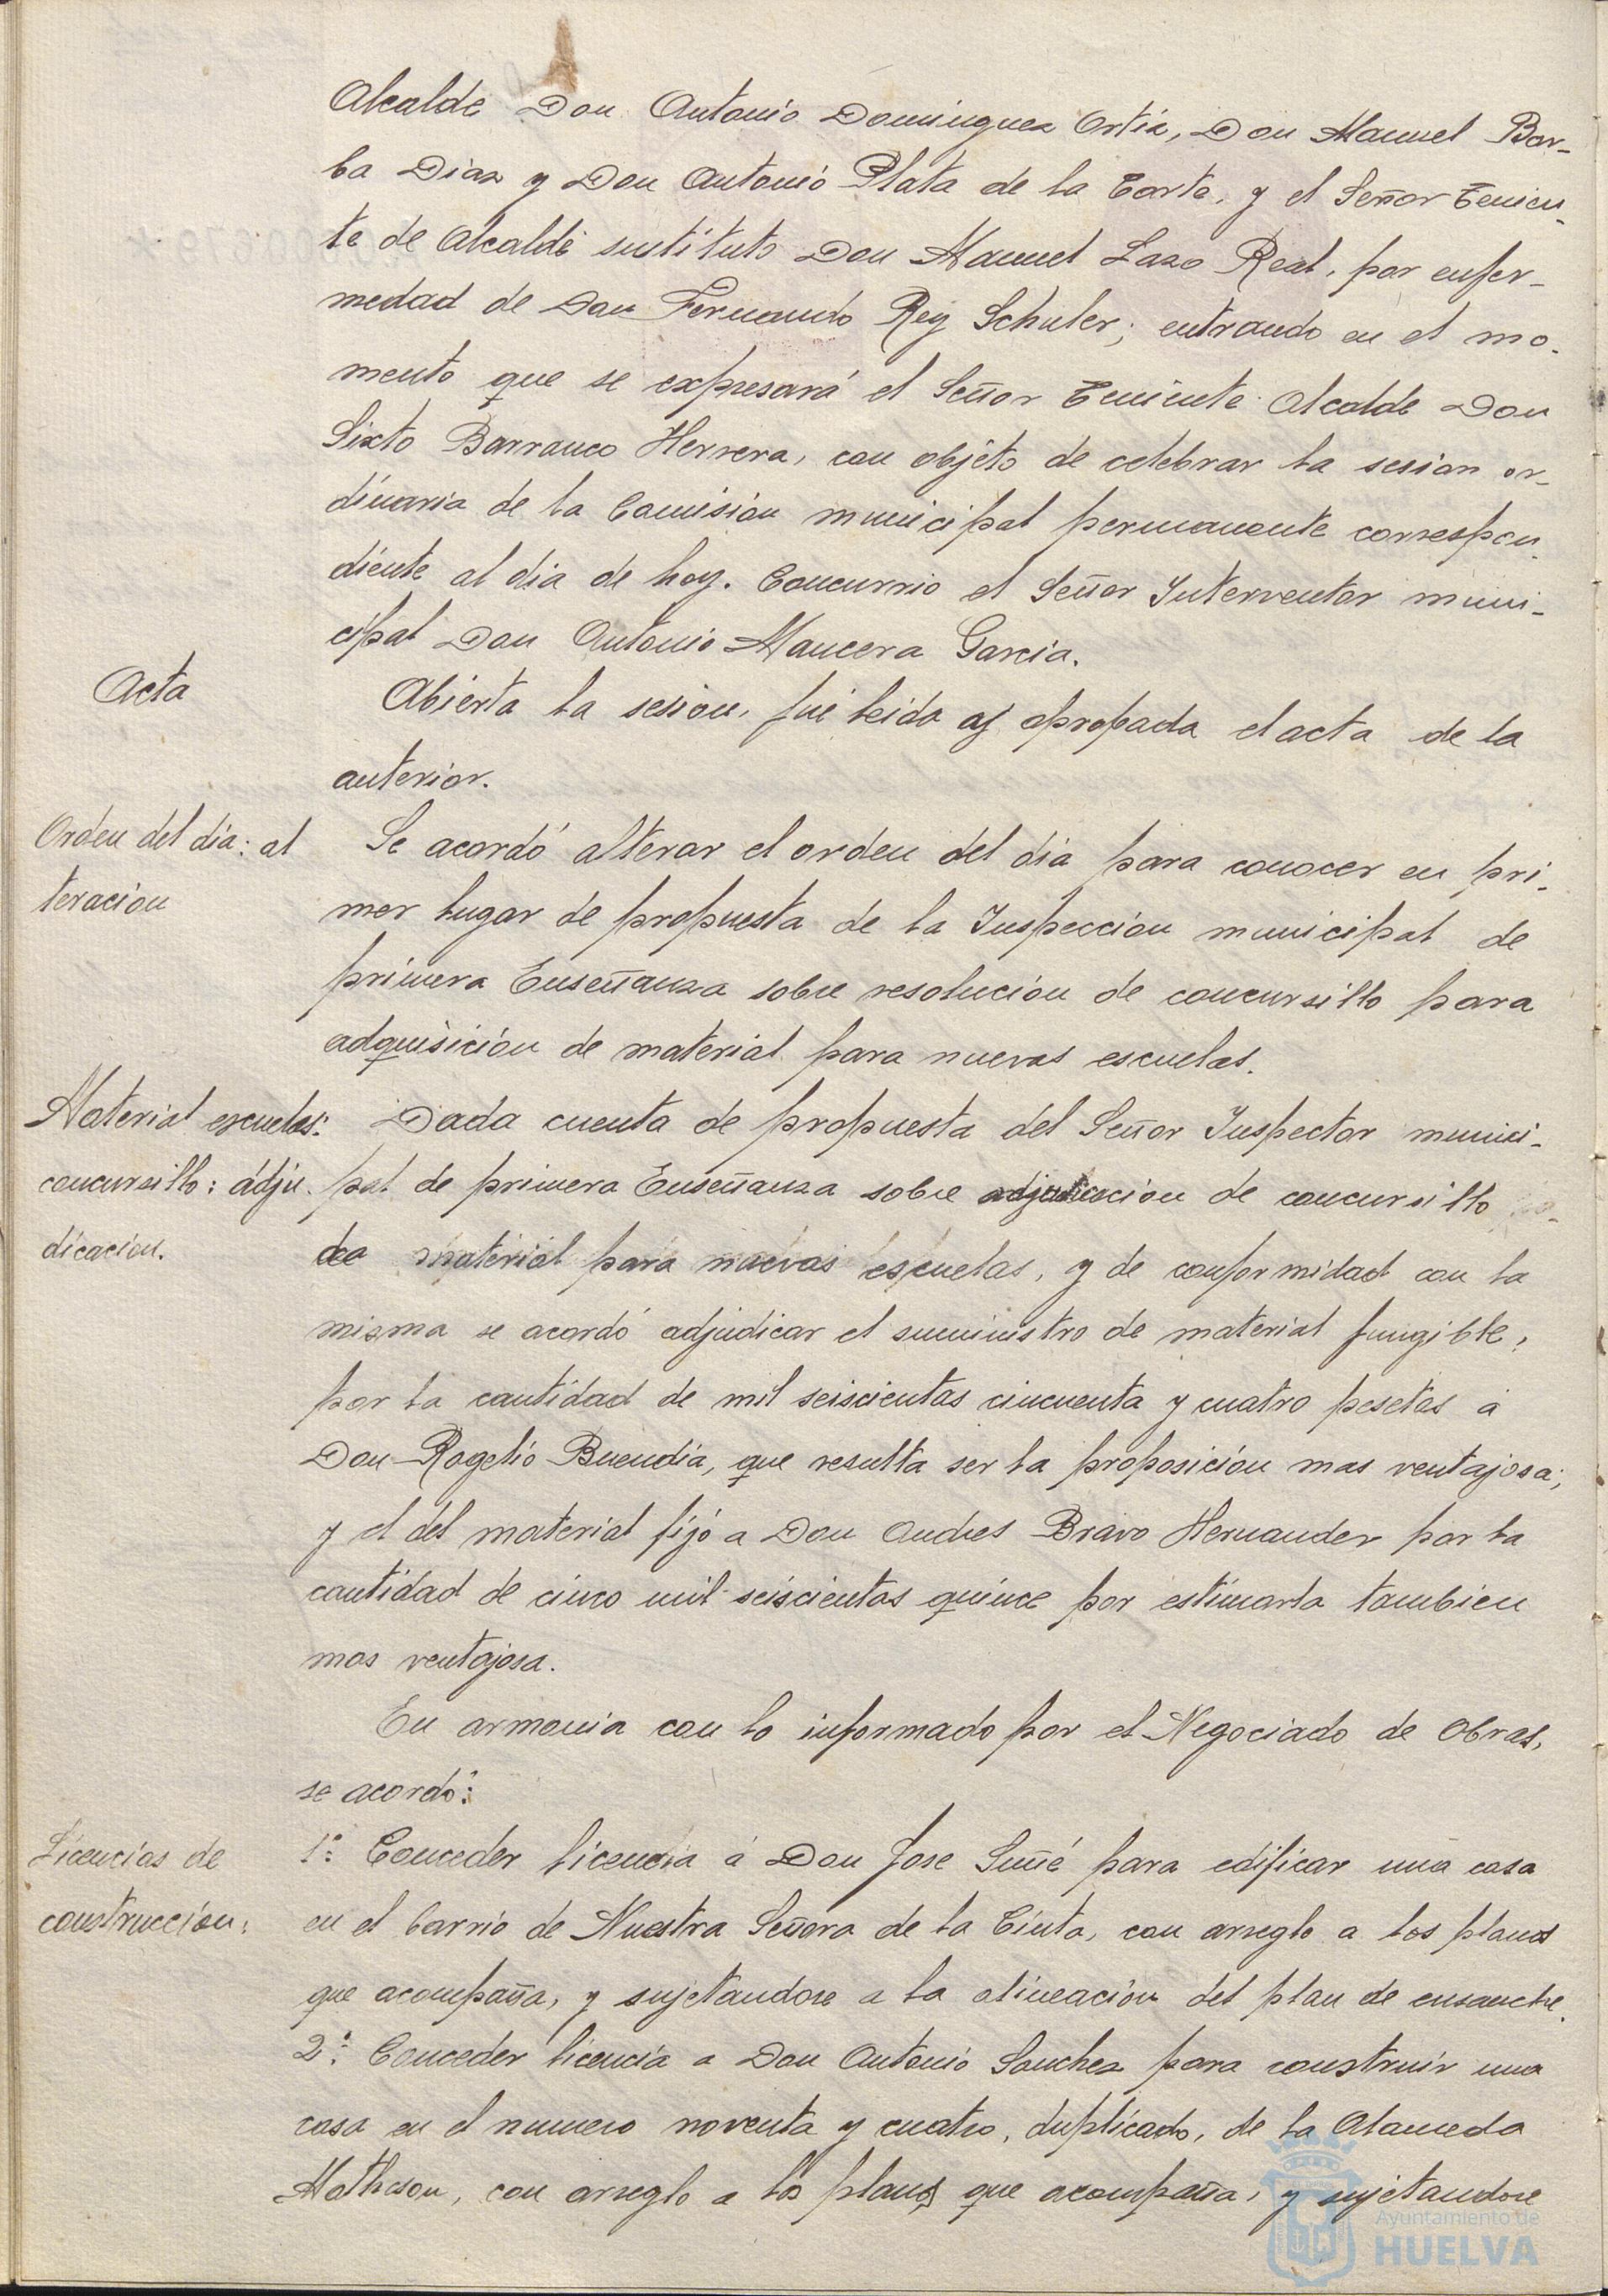 Alcalde Don Antonio Dominguez Ortiz, Don Manuel Bar-
ba Diaz y Don Antonio Plata de la Corte, y el Señor Tenien-
te de Alcalde sustituto Don Manuel Lazo Real, por enfer-
medad de Don Fernando Rey Schuler; entrando en el mo-
mento que se expresará el Señor Teniente Alcalde Don
Sixto Barranco Herrera, con objeto de celebrar la sesion or-
dinaria de la Comisión municipal permanente correspon-
diente al dia de hoy. Concurrio el Señor Interventor muni-
cipal Don Antonio Mancera Garcia.
Acta
Abierta la sesion, fué leida y aprobada el acta de la
anterior.
Orden del dia: al
teracion
Se acordó alterar el orden del dia para conocer en pri-
mer lugar de propuesta de la Inspección municipal de
primera Enseñanza sobre resolucion de concursillo para
adquisición de material para nuevas escuelas.
Material escuelas:
concursillo: adju-
dicacion.
Dada cuenta de propuesta del Señor Inspector munici-
pal de primera Enseñanza sobre adjudicacion de concursillo
de material para nuevas escuelas, y de conformidad con la
misma se acordó adjudicar el suministro de material fungible,
por la cantidad de mil seiscientas cincuenta y cuatro pesetas á
Don Rogelio Buendía, que resulta ser la proposición mas ventajosa;
y el del material fijo a Don Andres Bravo Hernandez por la
cantidad de cinco mil seiscientas quince por estimarla tambien
mas ventajosa.
En armonia con lo informado por el Negociado de Obras,
se acordó:
Licencias de
construcción:
1º: Conceder licencia á Don Jose Suñé para edificar una casa
en el barrio de Nuestra Señora de la Cinta, con arreglo a los planos
que acompaña, y sujetandose a la alineación del plan de ensanche.
2º: Conceder licencia a Don Antonio Sanchez para construir una
casa en el numero noventa y cuatro, duplicado, de la Alameda
Matheson, con arreglo a los planos que acompaña, y sujetandose
Ayuntamiento de
HUELVA